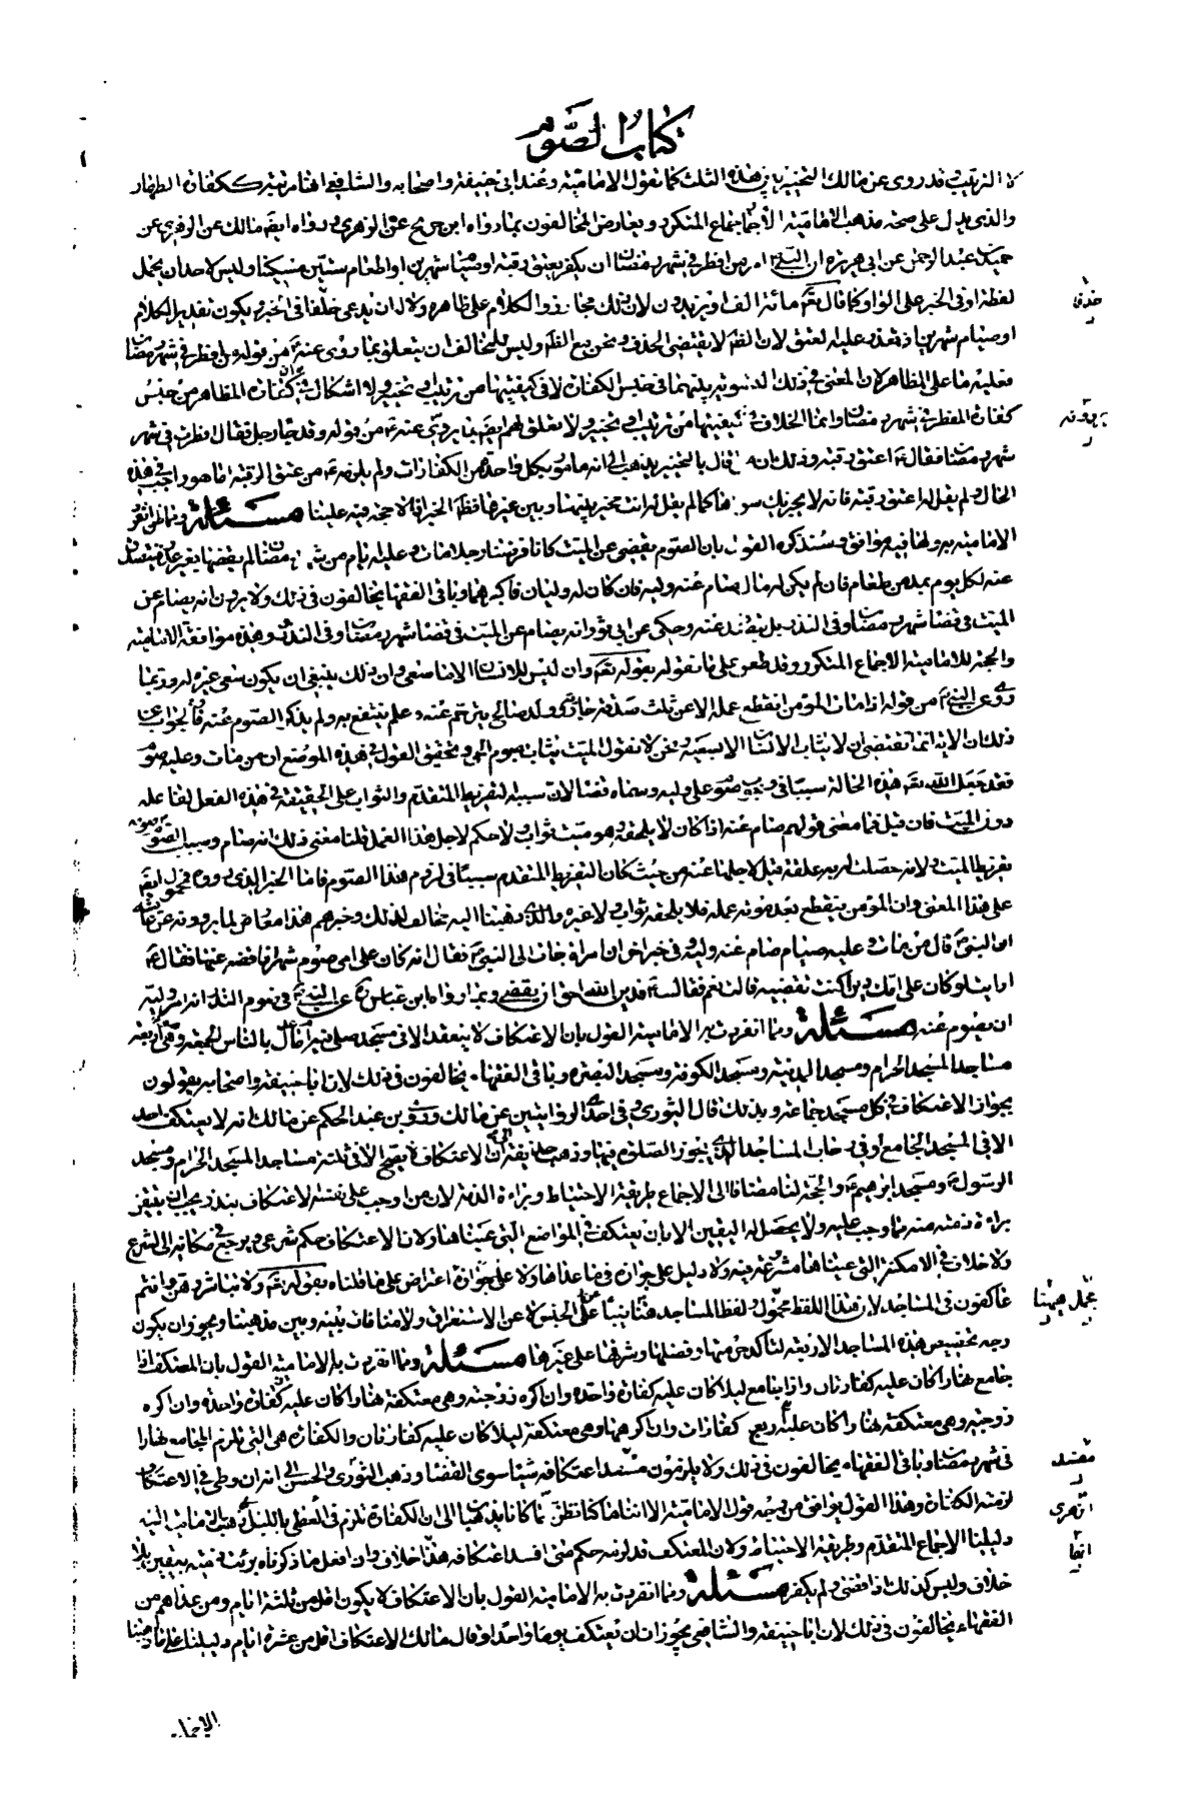 كتاب الصوم
لا الترتيب وقد روى عن مالك التخيير بين هذه الثلث كما تقول الامامية وعند ابي حنيفة واصحابه والشافعي انها مرتبة ككفارة الظهار
والذي يدل على صحة مذهب الامامية الاجماع المتكرر ويعارض المخالفون بما رواه ابن جريح عن الزهري ورواه ايضا مالك عن الزهري عن
حميد بن عبد الرحمن عن ابي هريرة ان النبي امر من افطر في شهر رمضان ان يكفر بعتق رقبة او صيام شهرين او اطعام ستين مسكينا وليس لاحد ان يحمل
لفظة او في الخبر على الواو كما قال تعالى مائة الف او يزيدون لان ذلك مجاز والكلام على ظاهره ولا له ان يدعى حذفا في الخبر ويكون تقدير الكلام
او صيام شهرين ان تعذر عليه العتق لان الظاهر لا يقتضي الحذف ونحن مع الظاهر وليس للمخالف ان يتعلق بما روى عنه من قوله من افطر في شهر رمضان
فعليه ما على المظاهر لان المعنى في ذلك التسوية بينهما في جنس الكفارة لا في كيفيتها من ترتيب او تخيير ولا اشكال في ان كفارة المظاهر من جنس
كفارة المفطر في شهر رمضان وانما الخلاف في كيفيتها من ترتيب او تخيير ولا تعلق لهم ايضا بما يروى عنه من قوله وقد جاء رجل فقال افطرت في شهر
شهر رمضان فقال اعتق رقبة وذلك انه من قال بالتخيير يذهب الى انه مامور بكل واحدة من الكفارات ولم يلزمه من عتق الرقبة الا ما هو واجب في هذه
الحال ولم يقل له اعتق رقبة فانه لا يجزيك سواها كما لم يقل له انت مخير بينها وبين غيرها فظاهر الخبر انه لا حجة فيه علينا مسئلة ومما ظن انفراد
الامامية به ولها فيه موافق وسنذكره القول بان الصوم يقضى عن الميت كانا فرضنا رجلا مات وعليه ايام من شهر رمضان لم يقضها بغير عذر فيتصدق
عنه لكل يوم بمد من طعام فان لم يكن له مال صام عنه وليه فان كان له وليان فاكبرهما وباقي الفقهاء يخالفون في ذلك ولا يرون انه يصام عن
الميت في قضاء شهر رمضان وفي النذر بل يتصدق عنه وحكى عن ابي ثور انه يصام عن الميت في قضاء شهر رمضان وفي النذر وهذه موافقة الامامية
والحجة للامامية الاجماع المتكرر وقد طعن على ما نقوله بقوله تعالى وان ليس للانسان الا ما سعى وان ذلك ينبغي ان يكون سعى غيره له وربما
روى عن النبي من قوله اذا مات المؤمن انقطع عمله الا عن ثلث صدقة جارية وولد صالح يترحم عنه وعلم ينتفع به ولم يذكر الصوم عنه والجواب عن
ذلك ان الاية انما تقتضي ان لا يثاب الانسان الا بسعيه ونحن لا نقول الميت يثاب بصوم الحي وتحقيق القول في هذه الموضع ان من مات وعليه صوم
فقد جعل الله تعالى هذه الحالة سببا في وجوب صوم على وليه وسماه قضاء لان سببه لتفريط المتقدم والثواب على الحقيقة في هذه الفعل لفاعله
دون الميت فان قيل فما معنى قولهم صام عنه اذا كان لا يلحقه وهو ميت ثواب ولا حكم لاجل هذا العمل قلنا معنى ذلك انه صام وسبب الصوم
تفريط الميت ولانه حصلت له به علقة قيل لاجلها عنه من حيث كان التفريط المتقدم سببا في لزوم هذا الصوم فاما الخبر الذي رووه فمحمول ايضا
على هذا المعنى وان المؤمن ينقطع بعد موته عمله فلا يلحقه ثواب ولا غيره والذي ذهبنا اليه يخالف لذلك وخبرهم هذا معارض لما يروونه عن عائشة
ان النبي قال من مات وعليه صيام صام عنه وليه وفي خبر اخر ان امراة جاءت الى النبي فقالت انه كان على امي صوم شهر افاقضه عنها فقال
ارايت لو كان على امك دين اكنت تقضيه قالت نعم فقال فدين الله احق ان يقضى وبما رواه ابن عباس عن النبي في صوم النذر انه امر وليه
ان يصوم عنه مسئلة ومما انفردت به الامامية القول بان الاعتكاف لا ينعقد الا في مسجد صلى فيه امام عدل بالناس الجمعة وهي اربعة
مساجد المسجد الحرام ومسجد المدينة ومسجد الكوفة ومسجد البصرة وباقي الفقهاء يخالفون في ذلك لان ابا حنيفة واصحابه يقولون
بجواز الاعتكاف في كل مسجد جماعة وبذلك قال الثوري وفي احدى الروايتين عن مالك وروى بن عبد الحكم عن مالك انه لا يعتكف احد
الا في المسجد الجامع او في رحاب المساجد التي يجوز الصلوة فيها وذهب حذيفة الى ان الاعتكاف لا يصح الا في ثلثة مساجد المسجد الحرام ومسجد
الرسول ومسجد ابراهيم والحجة لنا مضافا الى الاجماع طريقة الاحتياط وبراءة الذمة لان من اوجب على نفسه الاعتكاف بنذر يجب ان يتيقن
براءة ذمته منه مما وجب عليه ولا يحصل له اليقين الا بان يعتكف في المواضع التي عيناها ولان الاعتكاف حكم شرعي ويرجع في مكانه الى الشرع
ولا خلاف في الامكنة التي عيناها مشروعة فيه ولا دليل على جوازه فيما عداها ولا على جوازه اعتراض على ما قلناه بقوله تعالى ولا تباشروهن وانتم
عاكفون في المساجد لان هذا اللفظ مجمل ولفظ المساجد هنا ينبئ عن الجنس لا عن الاستغراق ولا منافات بينه وبين مذهبنا ويجوز ان يكون
وجه تخصيص هذه المساجد الاربعة لتاكد حرمتها وفضلها وشرفها على غيرها مسئلة ومما انفردت به الامامية القول بان المعتكف اذا
جامع نهارا كان عليه كفارتان واذا جامع ليلا كان عليه كفارة واحدة وان اكره زوجته وهي معتكفة نهارا كان عليه كفارة واحدة وان اكره
زوجته وهي معتكفة نهارا كان عليه اربع كفارات وان اكرهها وهي معتكفة ليلا كان عليه كفارتان والكفارة هي التي تلزم المجامع نهارا
في شهر رمضان وباقي الفقهاء يخالفون في ذلك ولا يلزمون مفسد اعتكافه شيئا سوى القضاء وذهب الثوري والحسن الى انه ان وطى في الاعتكاف
لزمته الكفارة وهذا القول يوافق من وجه قول الامامية الا اننا ما كنا نظن انهما كانا يذهبان الى ان الكفارة تلزم في الوطى بالليل كما يذهب الامامية اليه
دليلنا الاجماع المتقدم وطريقة الاحتياط ولان المعتكف قد لزمه حكم متى افسد اعتكافه بلا خلاف وان فعل ما ذكرناه برئت ذمته بيقين بلا
خلاف وليس كذلك اذا قضى ولم يكفر مسئلة ومما انفردت به الامامية القول بان الاعتكاف لا يكون اقل من ثلثة ايام ومن عداهم من
الفقهاء يخالفون في ذلك لان ابا حنيفة والشافعي يجوزان ان يعتكف يوما واحدا وقال مالك لا اعتكاف اقل من عشرة ايام دليلنا على ما ذهبنا
الاجماع